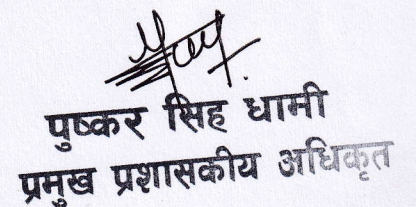 पुष्कर सिह धामी
प्रमुख प्रशासकीय अधिकृत